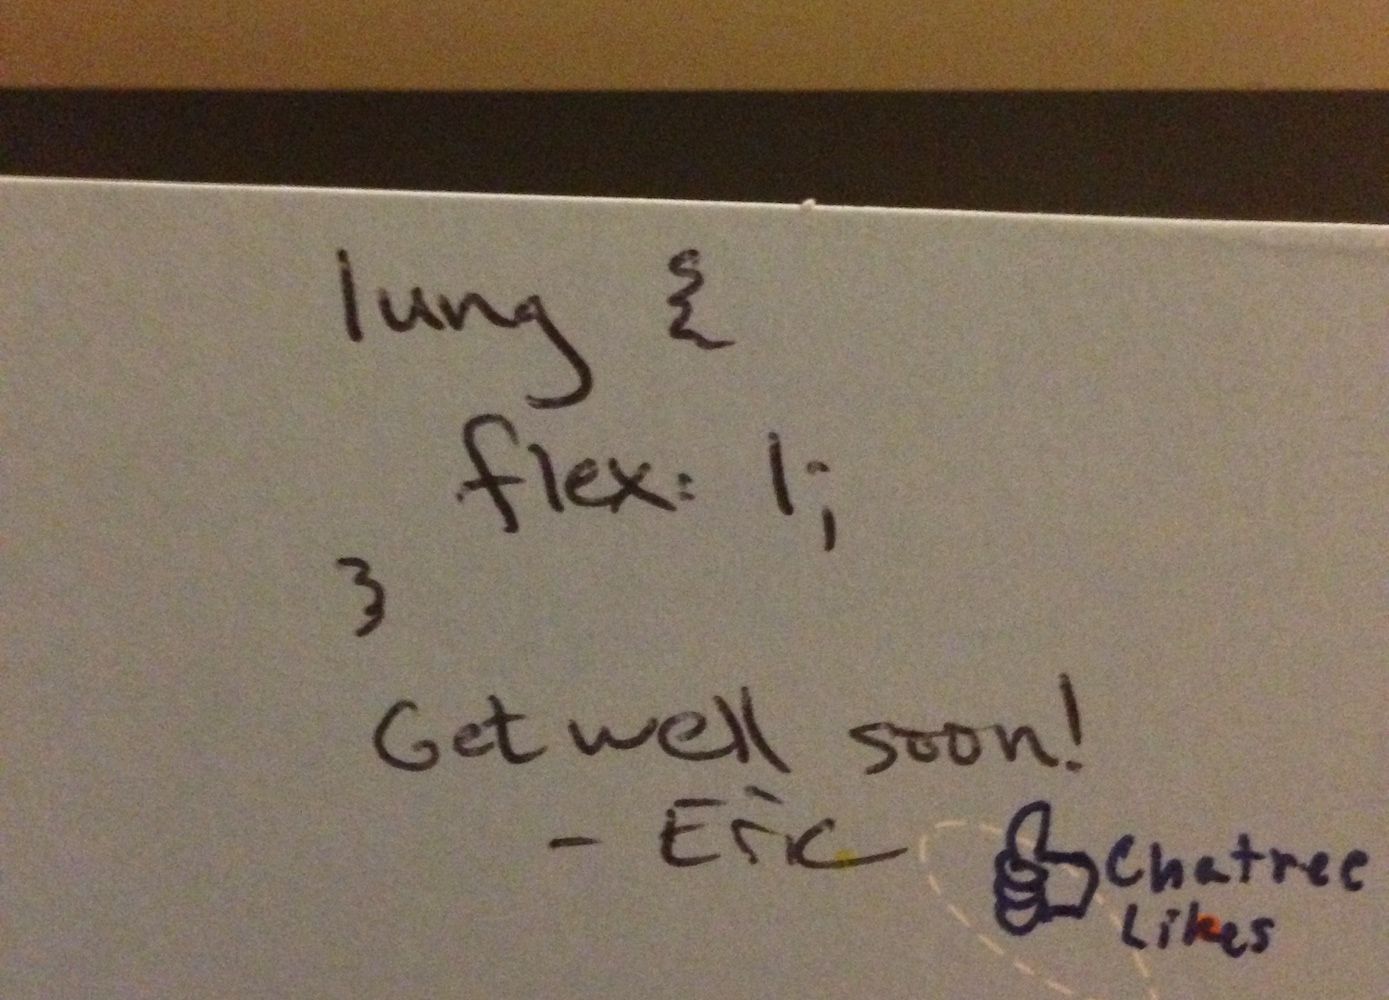 lung {
flex: 1;
}
Get well soon!
- Eric
Chatree
Likes